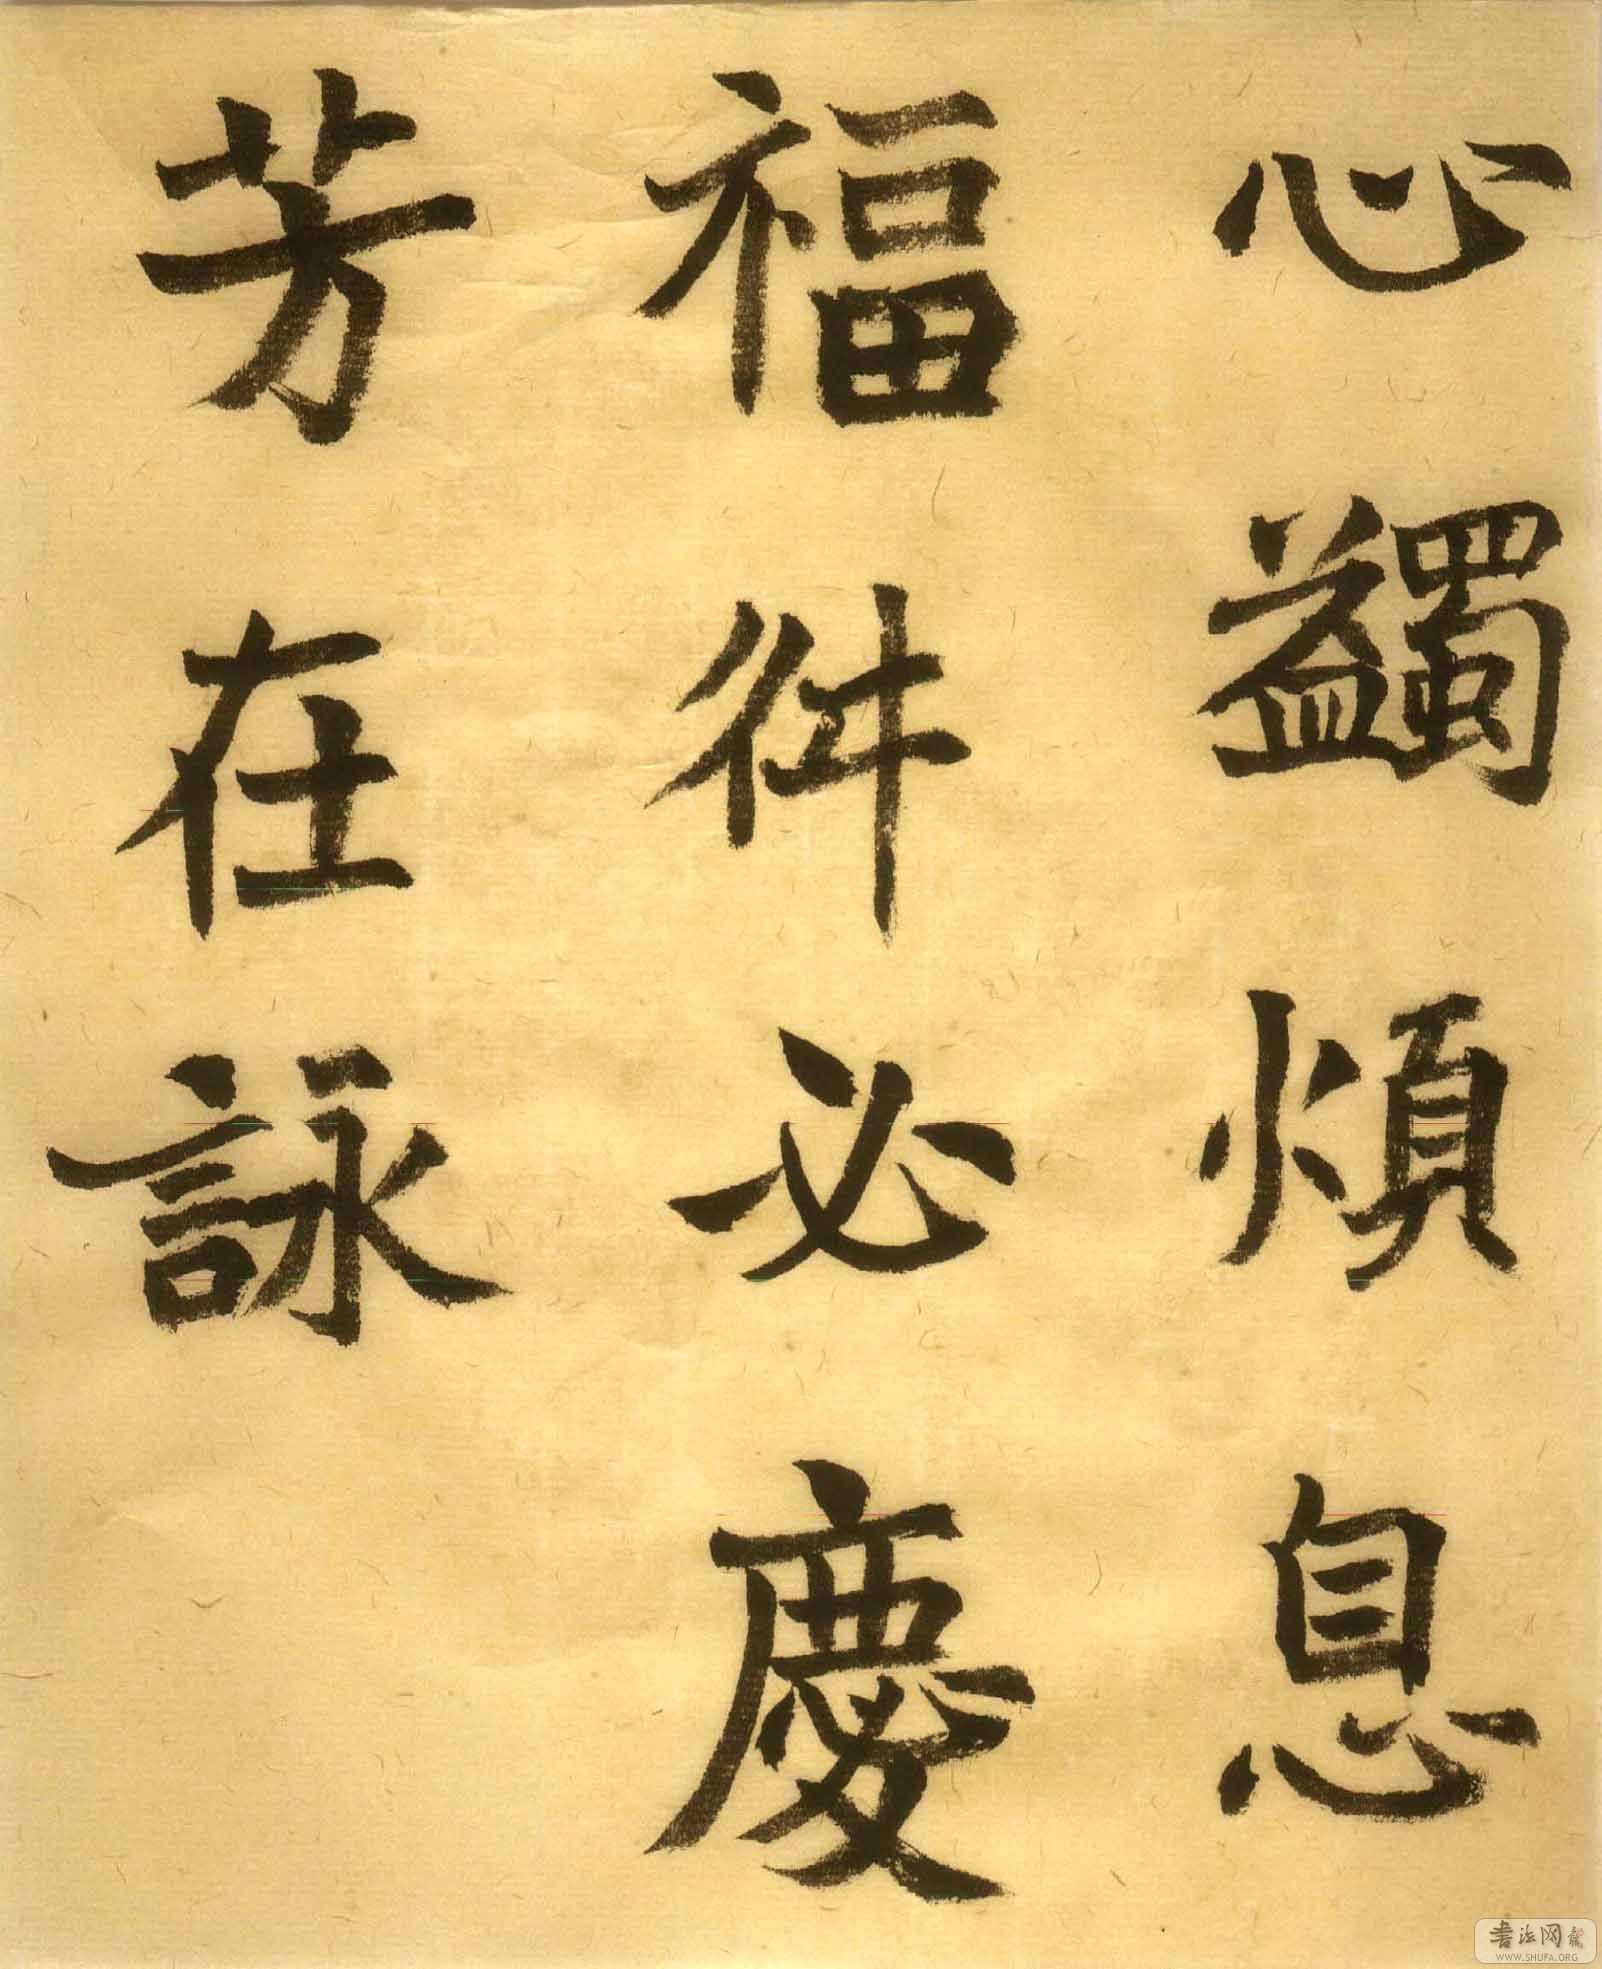 心蠲煩息
福必慶
芳在詠
書法网
WWW.SHUFA.ORG